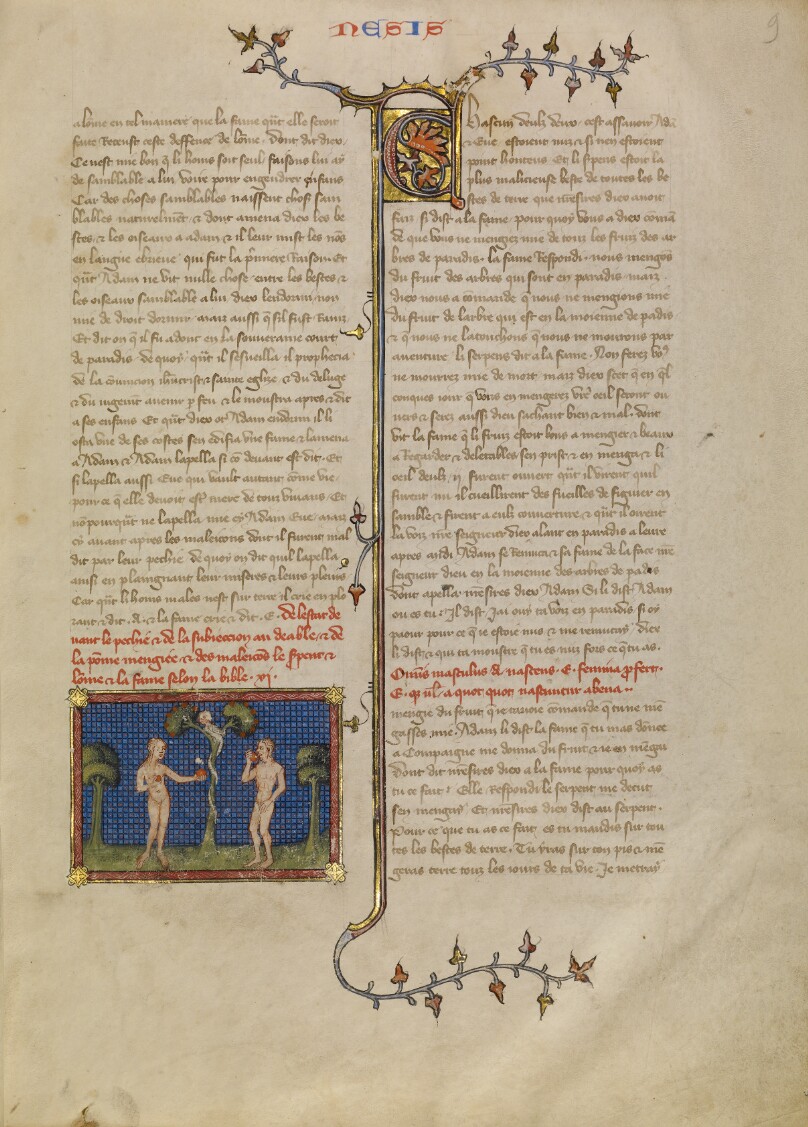 NESIS
9
alome en tel maniere que la fame qͥt elle seroit
faite Receust ceste deffence de lome. Dont dit dieu.
Ce nest mie bon q̄ li homs soit seul faisons lui ay
de samblable a lui. Voire pour engendrer
Car des choses samblables naissent choses sam
blables naturelmēt. & donc amena diex les be
stes. & les oiseaux a adam & il leur mist les nōs
en langue ebrieue qui fut la p̄miere Raison. Et
qūt Adam ne vit nulle chose entre les bestes &
les oiseaux samblable a lui dieu lendormi non
mie de droit dormir. maiz aussi q̄ sil fust Raviz
Et dit on q̄ il fu adonc en la souveraine court
de paradis. de quoy qūt il sesveilla il prophecia
de la & sainte eglise & du deluge
& du iugemt avenir p feu & le moustra apres & dit
a ses enfans. Et qūt dieu ot Adam endormi il li
osta une de ses costes sen edifia une fame & lamena
a Adam & Adam lapella si cō devant est dit. Et
si lapella aussi Eve qui vault autant cōme vie
pour ce q̄ elle devoit estre mere de touz vivans. Et
nō pourqūt ne lapella mie cy Adam Eve. maiz
cy avant apres les maleicons dont il furent mal
dit par leur pechie. de quoy on dit quil lapella
ainsi en plaingnant leur miseres & leurs pleurs
Car qūt li homs males nest sur terre il crie en plo
rant & dit. A. & la fame crie & dit. E. de lestat de
vant le pechie & de la subieccion au deable. & de
la pōme mengiee & des maleicōs le serpent &
lōme & la fame selon la bible. xi.
Chascun deulz deux. cest assavoir Adā
& Eve estoient nuz & si nen estoient
point honteus. Et li serpens estoit la
plus malicieuse beste de toutes les be
stes de terre que messires diex avoit
fait. si dist a la fame. pour quoy vous a diex coman
de que vous ne mengiez mie de touz les fruiz des ar
bres de paradis. la fame Respondi. nous mengōs
du fruit des arbres qui sont en paradis. maiz
diex nous a comande q̄ nous ne mengions mie
du fruit de larbre qui est en la moienne de padis
& q̄ nous ne latouchons q̄ nous ne mourons par
aventure. li serpens dit a la fame. Non ferez
ne mourrez mie de mort. maiz diex scet q̄ en q̄l
conques iour q̄ vous en mengerez oeil seront ou
vers & serez aussi dieu sachant bien & mal. dont
vit la fame q̄ li fruiz estoit bons a mengier & beaux
a Regarder & delectables sen prist & en menga & li
oeil deulz. ij. furent ouvert qūt il virent quil
furent nu il cueillirent des fueilles de figuier en
samble & firent a eulz couverture & qūt il oirent
la voiz seigneur dieu alant en paradis a leure
apres midi Adam se Remuca & sa fame de la face
seigneur dieu en la moienne des arbres de padis
dont apella messires diex Adam Si li dist Adam
ou es tu. Il dist. Iai ouy ta voiz en paradis si oy
paour pour ce q̄ ie estoie nus & me remucay diex
li dist & qui ta moustre q̄ tu es nuz fors ce q̄ tu as
Omnis masculus A nascens. E. femina
E. a quot quot nascuntur ab eva..
mengie du fruit q̄ ie tavoie comande q̄ tu ne mē
gasses mie. Adam li dist la fame q̄ tu mas donee
a Compaigne me dōna du fruit & ie en mēgai
dont dit messires diex a la fame pour quoy as
tu ce fait? Elle Respondi le serpent me deceut
sen mengay. Et messires diex dist au serpent.
Pour ce que tu as ce fait es tu maudis sur tou
tes les bestes de terre. Tu yras sur ton pis & mē
geras terre touz les iours de ta vie. Je metray